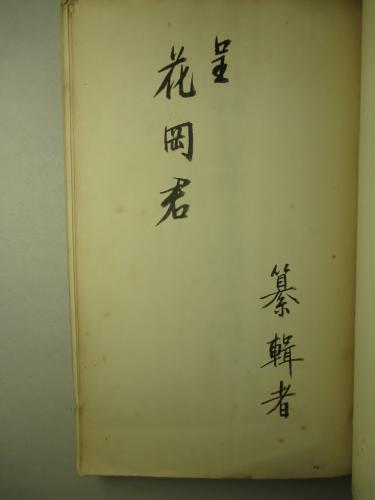 呈
花岡君
纂輯者